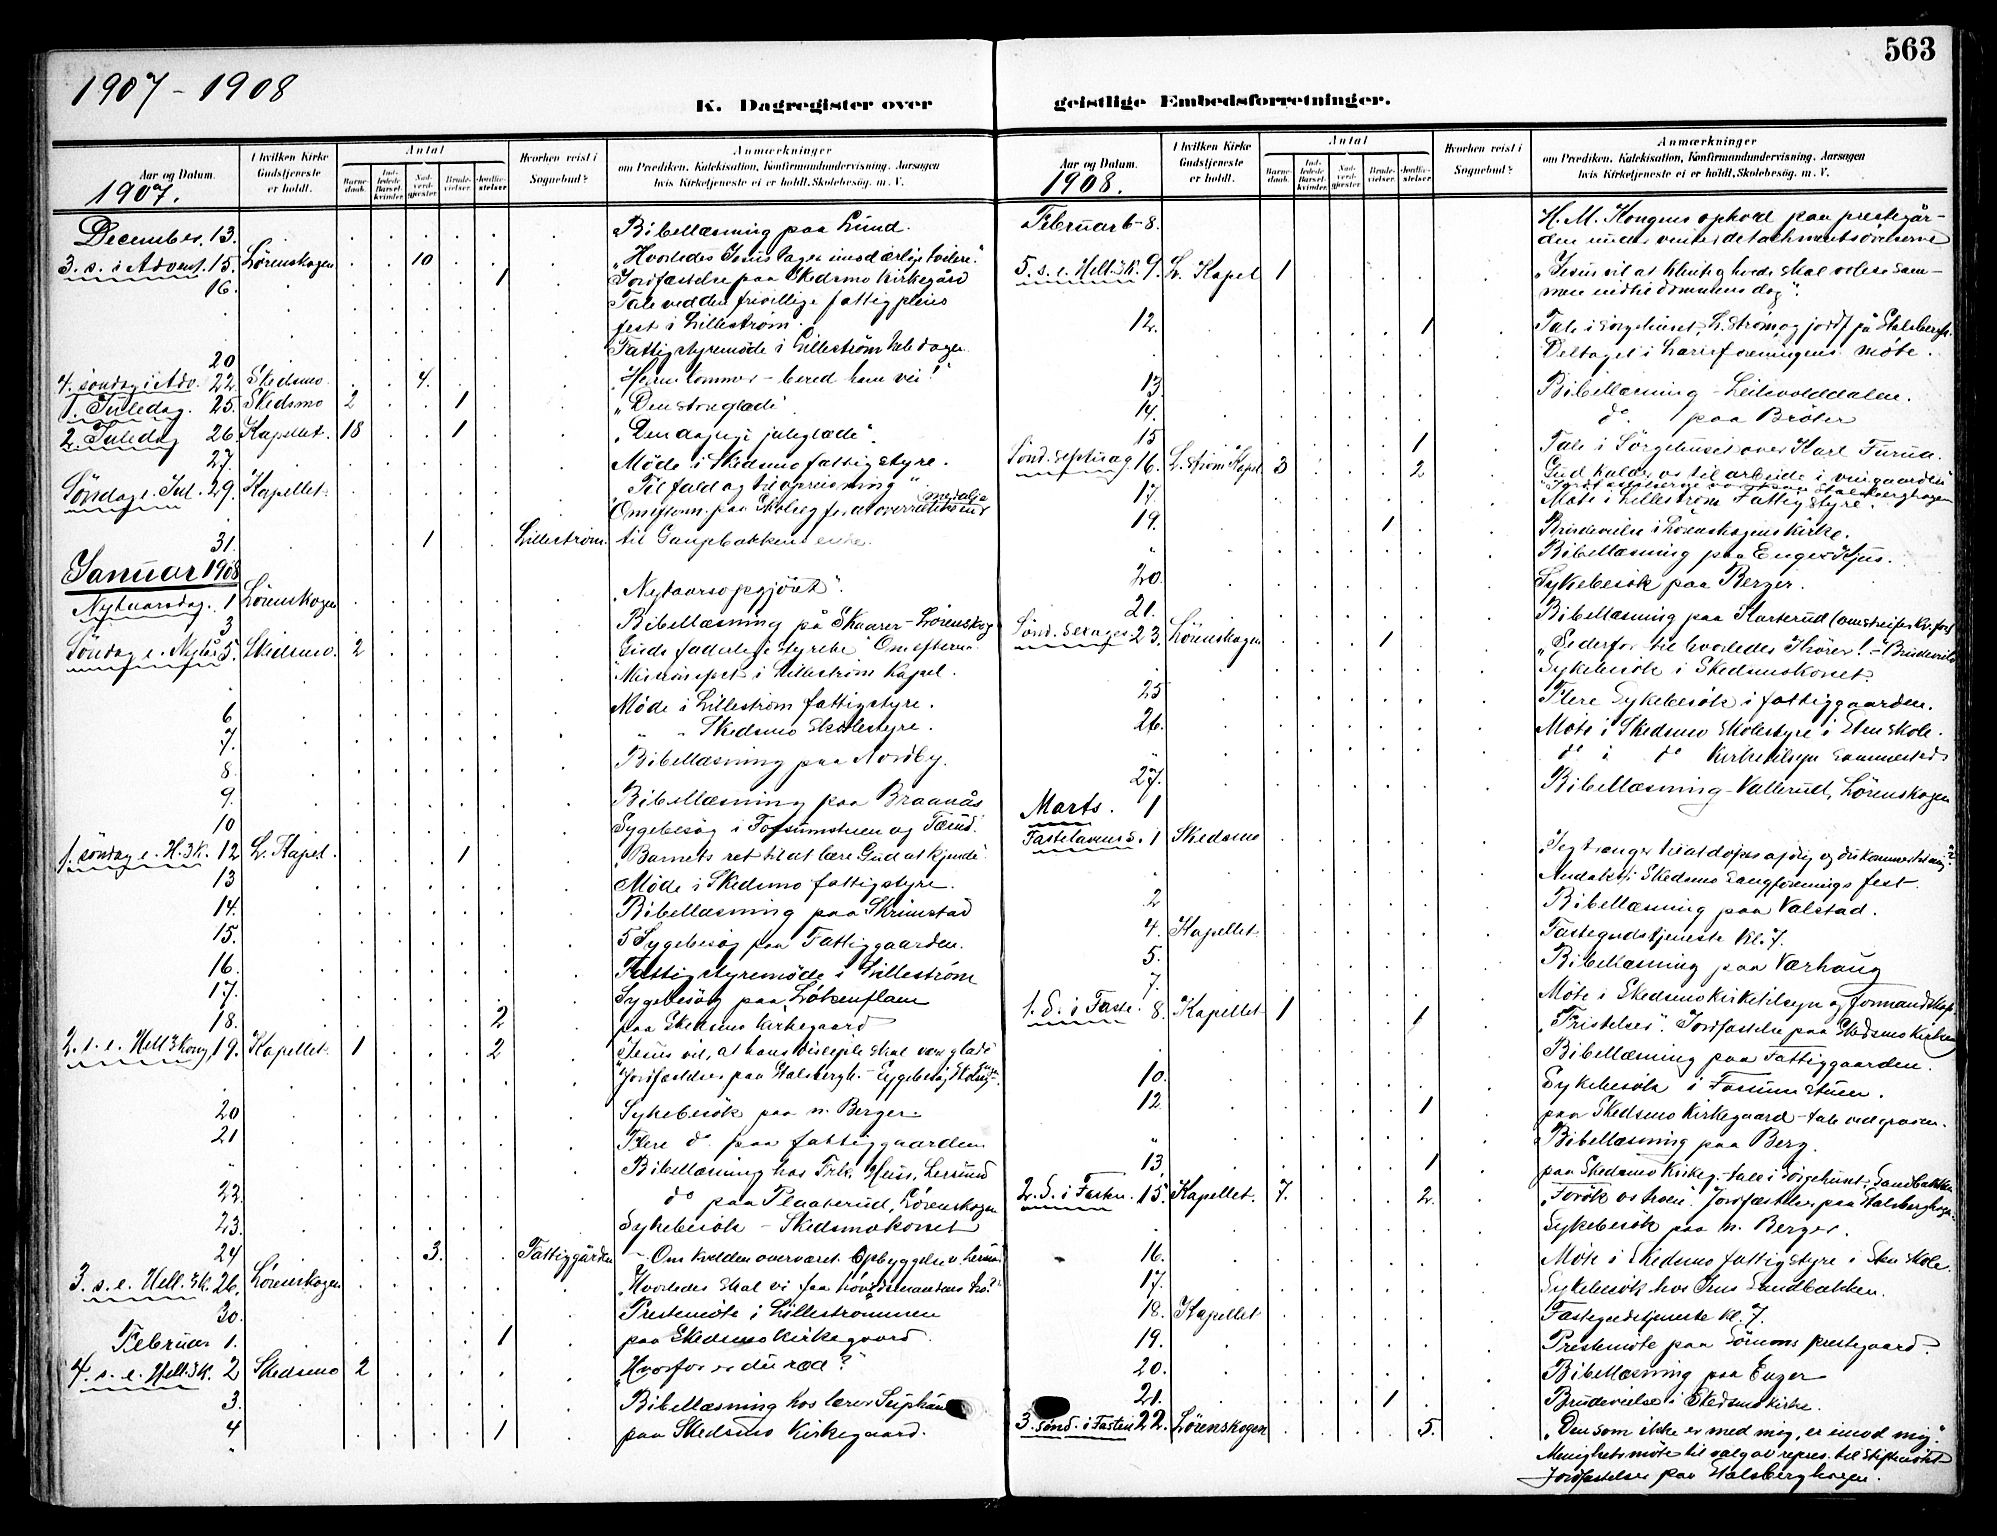 563
1907 - 1908
K. Dagregister over
geistlige Embedsforretninger.
Aar og Datum.
1907.
I hvilken Kirke Gudstjeneste er holdt.
Antal
Barne-daab.
Ind-ledede Barsel-kvinder.
Nad-verd-gjester
Brude-vielser.
Jordfæ-stelser
Hvorhen reist i Sognebud?
Anmærkninger
om Prædiken, Katekisation, Konfirmandundervisning, Aarsagen
hvis Kirketjeneste ei er holdt, Skolebesøg, m. V.
December. 13. Bibellæsning paa Lund.
3. s. i Advent. 15. Lörenskogen 10 „Hvorledes Jesus tager imod ærlige tvilere."
16. 1 Jordfæstelse paa Skedsmo Kirkegård
Tale ved den frivillige fattigpleies
fest i Lilleström.
20 Fattigstyremöde i Lilleström
4. söndag i Adv. 22. Skedsmo. 4. „Herren kommer - bered ham vei!"
1. Juledag. 25. Skedsmo 2 1 „Den store glæde"
2. Juledag 26. Kapellet. 18 1 „Den daglige juleglæde".
27. Möde i Skedsmo fattigstyre.
Söndag e. Jul. 29. Kapellet. „Til fald og til opreisning"
31. 1 Lilleström. til Gaupbakkens enke.
Januar 1908
Nytaarsdag. 1 Lörenskogen „Nytaarsopgjöret".
3 Bibellæsning på Skaarer - Lörenskog
Söndag e. Nytår 5. Skedsmo. 2 Guds faderlige styrelse
Missionsfest i Lilleström Kapel.
6 Möde i Lilleström fattigstyre.
7. „ „ Skedsmo Skolestyre.
8. Bibellæsning paa Nordby.
9. Bibellæsning paa Braanås
10 Sygebesög i Fossumstuen og
1. söndag e. H.3K. 12 L. Kapel. 1 „Barnets ret til at lære Gud at kjende"
13 Möde i Skedsmo fattigstyre.
14. Bibellæsning paa Skrimstad
15. 5 Sygebesög paa Fattiggaarden.
16. Fattigstyremöde i Lilleström
17. Sygebesög paa Lökenflaen
18. 2 paa Skedsmo Kirkegaard
2. s. e. Hell 3 Kong. 19. Kapellet. 1 2 „Jesus vil, at hans disciple skal være glade"
Jordfæstelse paa Stalsbergh. - Sygebesög
20 Sykebesök paa n. Berger.
21 Flere do paa fattiggaarden
„ Bibellæsning hos Frk. Huss, Lersund
22. do paa Plaaterud, Lörenskogen
23. Sykebesök - Skedsmokorset
24 3. Fattiggården - Om kvelden overværet Opbyggelse
3. s. e. Hell. 3K. 26. Lörenskogen „Hvorledes skal vi faa hövedsmandens tro?"
30. Prestemöte i Lilleströmmen
Februar 1. 1 paa Skedsmo Kirkegaard.
4. s. e. Hell. 3K. 2 Skedsmo 2 „Hvorfor er du ræd?"
3. Bibellæsning hos lærer
4 1 paa Skedsmo Kirkegaard.
„
Aar og Datum.
1908.
I hvilken Kirke Gudstjeneste er holdt.
Antal
Barne-daab.
Ind-ledede Barsel-kvinder
Nad-verd-gjester
Brude-vielser.
Jordfæ-stelser
Hvorhen reist i Sognebud?
Anmærkninger
om Prædiken, Katekisation, Konfirmandundervisning, Aarsagen
hvis Kirketjeneste ei er holdt, Skolebesøg, m. V.
Februar 6-8. H. M. Kongens ophold paa prestegår-
den under vinterdetachmentsövelserne
5. s. e. Hell. 3K. 9. L. Kapel 1 „Jesus vil at klinte og hvede skal vokse sam-
men indtil dommens dag".
12. 1 Tale i sörgehuset, L.ström og jordf. på Stalsbergh.
Deltaget i Læreforeningens möte.
13 Bibellæsning - Leikvolddalen.
14. do paa Bröter
15 1 Tale i Sörgehuset over Karl Furua.
Sönd. septuag 16. L.ström Kapel 3 2 Gud kalder os til arbeide i vingaarden
17. Möte i Lilleström Fattigstyre.
19. 1 Brudevielse i Lörenskogens Kirke.
„ Bibellæsning paa Enger
20. Sykebesök paa Berger.
21. Bibellæsning paa
Sönd. sexages. 23. Lörenskogen 1 „Se derfor til hvorledes I hörer!" - Brudeviels
Sykebesök i Skedsmokorset.
25 Flere Sykebesök i fattiggaarden.
26. Möte i Skedsmo Skolestyre i Sten skole.
„ do i do Kirketilsyn sammesteds
27. Bibellæsning - Vallerud, Lörenskogen
Marts. 1
Fastelavnsd. 1 Skedsmo „Jeg trænger til at döpes af dig og du kommer til mig?"
Andakt i Skedsmo Sangforenings fest.
2 Bibellæsning paa Valstad.
4. Kapellet. Fastegudstjeneste Kl. 7.
5. Bibellæsning paa Værhaug
7. Möte i Skedsmo Kirketilsyn og formandskap.
1. S. i Faste. 8. Kapellet. 1 1 „Fristelser". Jordfæstelse paa Skedsmo Kirkeg
Bibellæsning paa Fattiggaarden.
10. Sykebesök i Fossumstuen.
12 1 paa Skedsmo Kirkegaard - tale ved graven.
„ Bibellæsning paa Berg.
13. 1 paa Skedsmo Kirkeg. - tale i Sörgehuset, Sandbakken
2. S. i Fasten. 15. Kapellet. 7. 2. „Forök os troen". Jordfæstelser paa Stalsberghagen.
Sykebesök paa n. Berger.
16. Möte i Skedsmo fattigstyre i Sten skole.
17. Sykebesök hos Jens Sandbakken.
18. Kapellet Fastegudstjeneste kl. 7.
19. Prestemöte paa Sörums prestegaard.
20. Bibellæsning paa Enger
21. 1 Brudevielse i Skedsmo kirke.
3. sönd. i Fasten 22. Lörenskogen 5. „Den som ikke er med mig, er imod mig".
Menighetsmöte til valg av repres. til Stiftsmötet
Jordfæstelse paa Stalsberghagen.